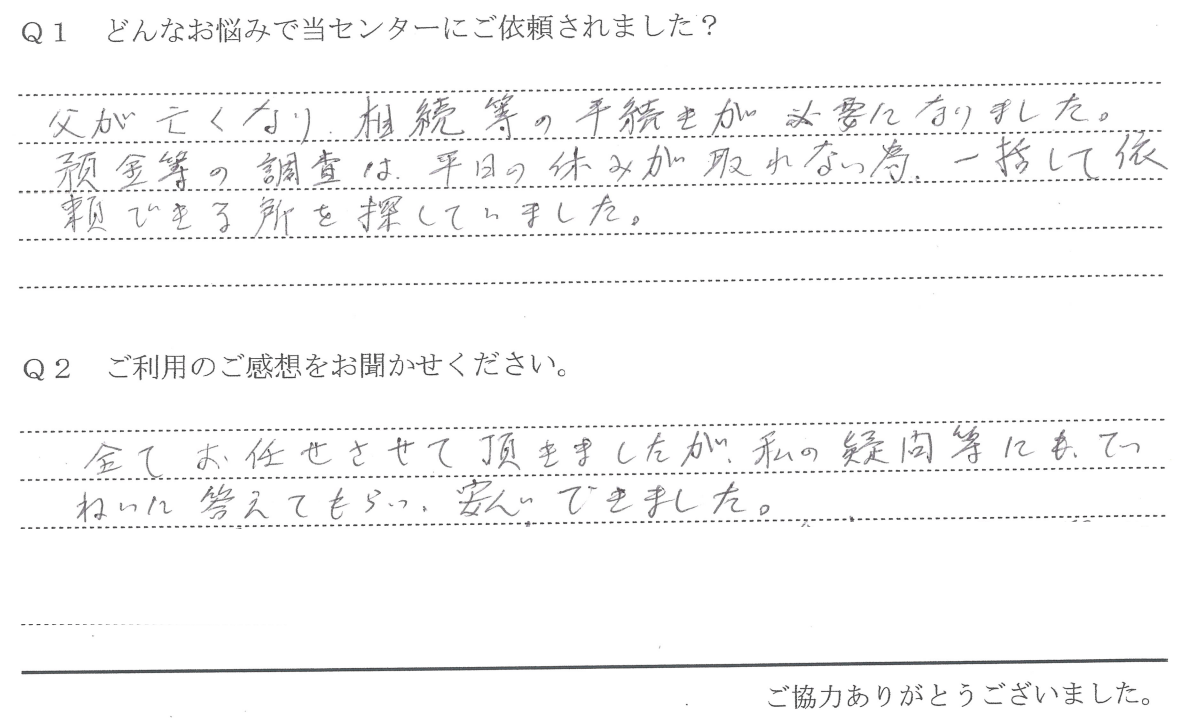 Q1 どんなお悩みで当センターにご依頼されました？
父が亡くなり、相続等の手続きが必要になりました。
預金等の調査は、平日の休みが取れない為、一括して依
頼できる所を探していました。
Q2 ご利用のご感想をお聞かせください。
全てお任せさせて頂きましたが、私の疑問等にも、てい
ねいに答えてもらい、安心できました。
ご協力ありがとうございました。